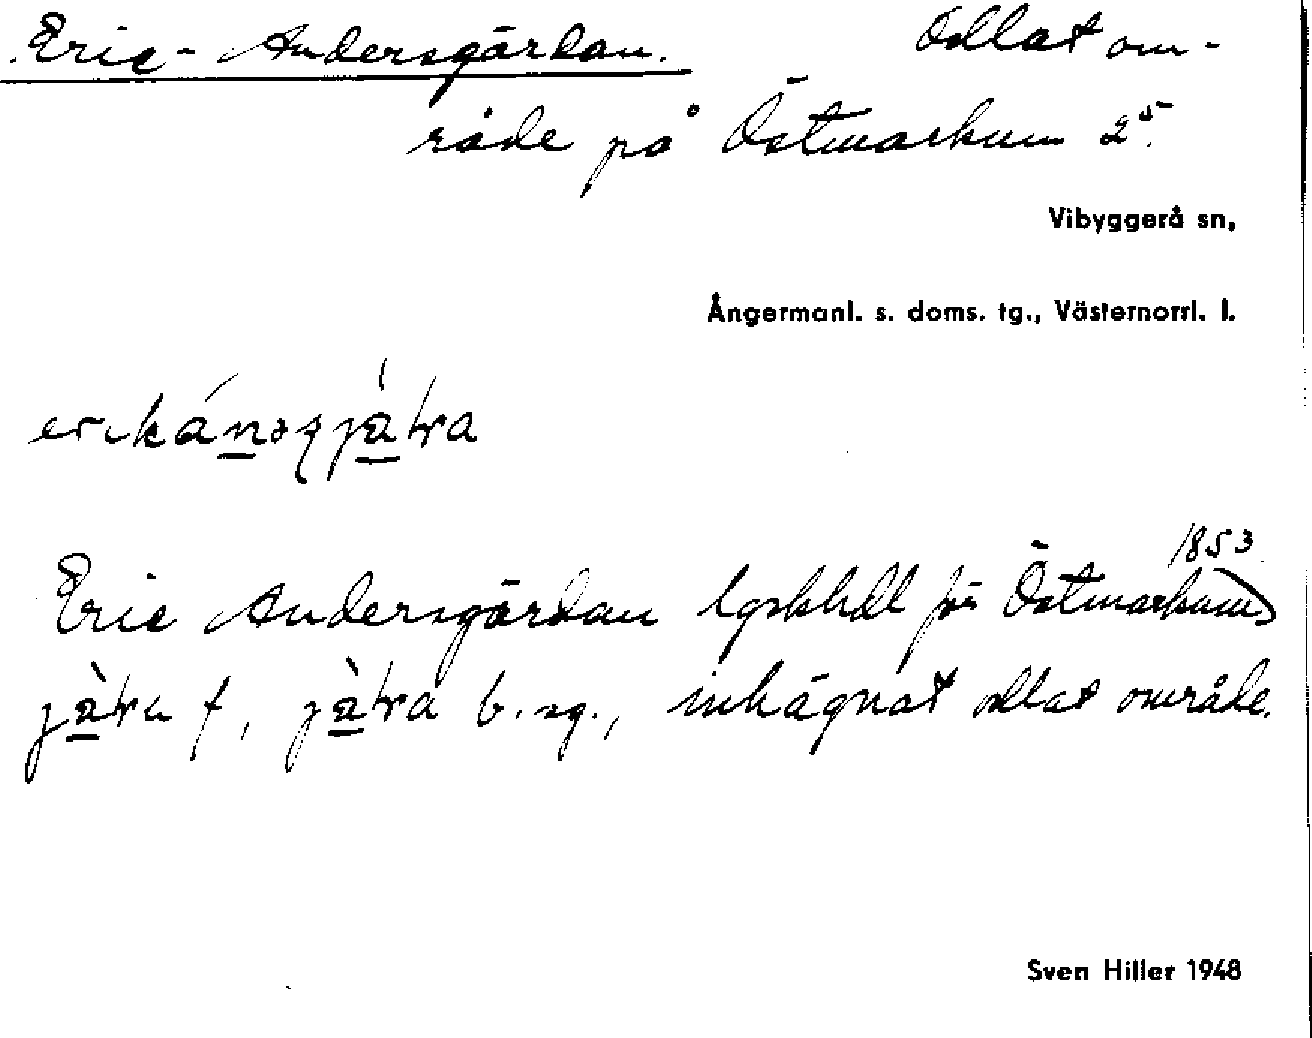 Eric-Andersgärdan. Odlat om-
råde på Östmarkum 2⁵.
Vibyggerå sn,
Ångermanl. s. doms. tg., Västernorrl. l.
Eric Andersgärdan lgskhdl för Östmarkum 1853
f, b. sg., inhägnat odlat område.
Sven Hiller 1948